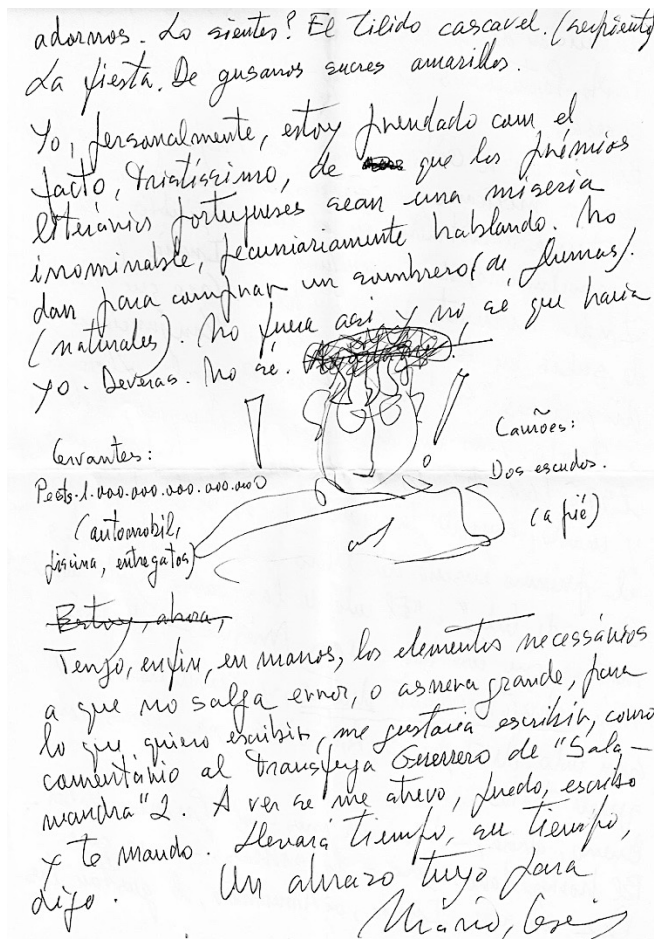 adornos. Lo sientes? El tilido cascavel. (serpiente)
La fiesta. De gusanos sucres amarillos.
Yo, personalmente, estoy prendado com el
facto, tristíssimo, de que los prémios
literários portugueses sean una miseria
innominable, pecuniariamente hablando. No
dan para comprar un sombrero (de plumas).
(naturales). No fuera asi y no sé que haria
yo. Deveras. No sé.
Cervantes:
Pests. 1.000.000.000.000.000
(automobil,
piscina, entregatos)
Camões:
Dos escudos.
(a pié)
Estoy, ahora,
Tengo, enfin, en manos, los elementos necessários
a que no salga error, o asnera grande, para
lo que quiero escribir, me gustaria escribir, como
comentário al transfuga Guerrero de "Sala-
mandra" 2. A ver se me atrevo, puedo, escribo
y te mando. Llevará tiempo, su tiempo,
digo. Un abrazo tuyo para
Mário,